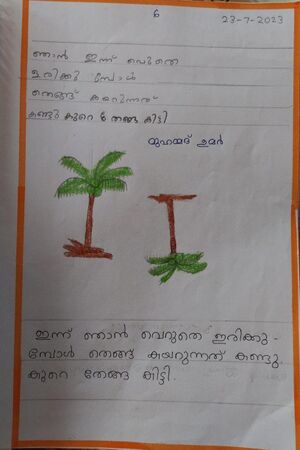 6
23-7-2023
ഞാൻ ഇന്ന് വെറുതെ
ഇരിക്കു മ്പോൾ
തെങ്ങ് കയറുന്നത്
കണ്ടു കുറെ തേങ്ങ കിട്ടി
മുഹമ്മദ് ഉമർ
ഇന്ന് ഞാൻ വെറുതെ ഇരിക്കു -
മ്പോൾ തെങ്ങ് കയറുന്നത് കണ്ടു.
കുറെ തേങ്ങ കിട്ടി.